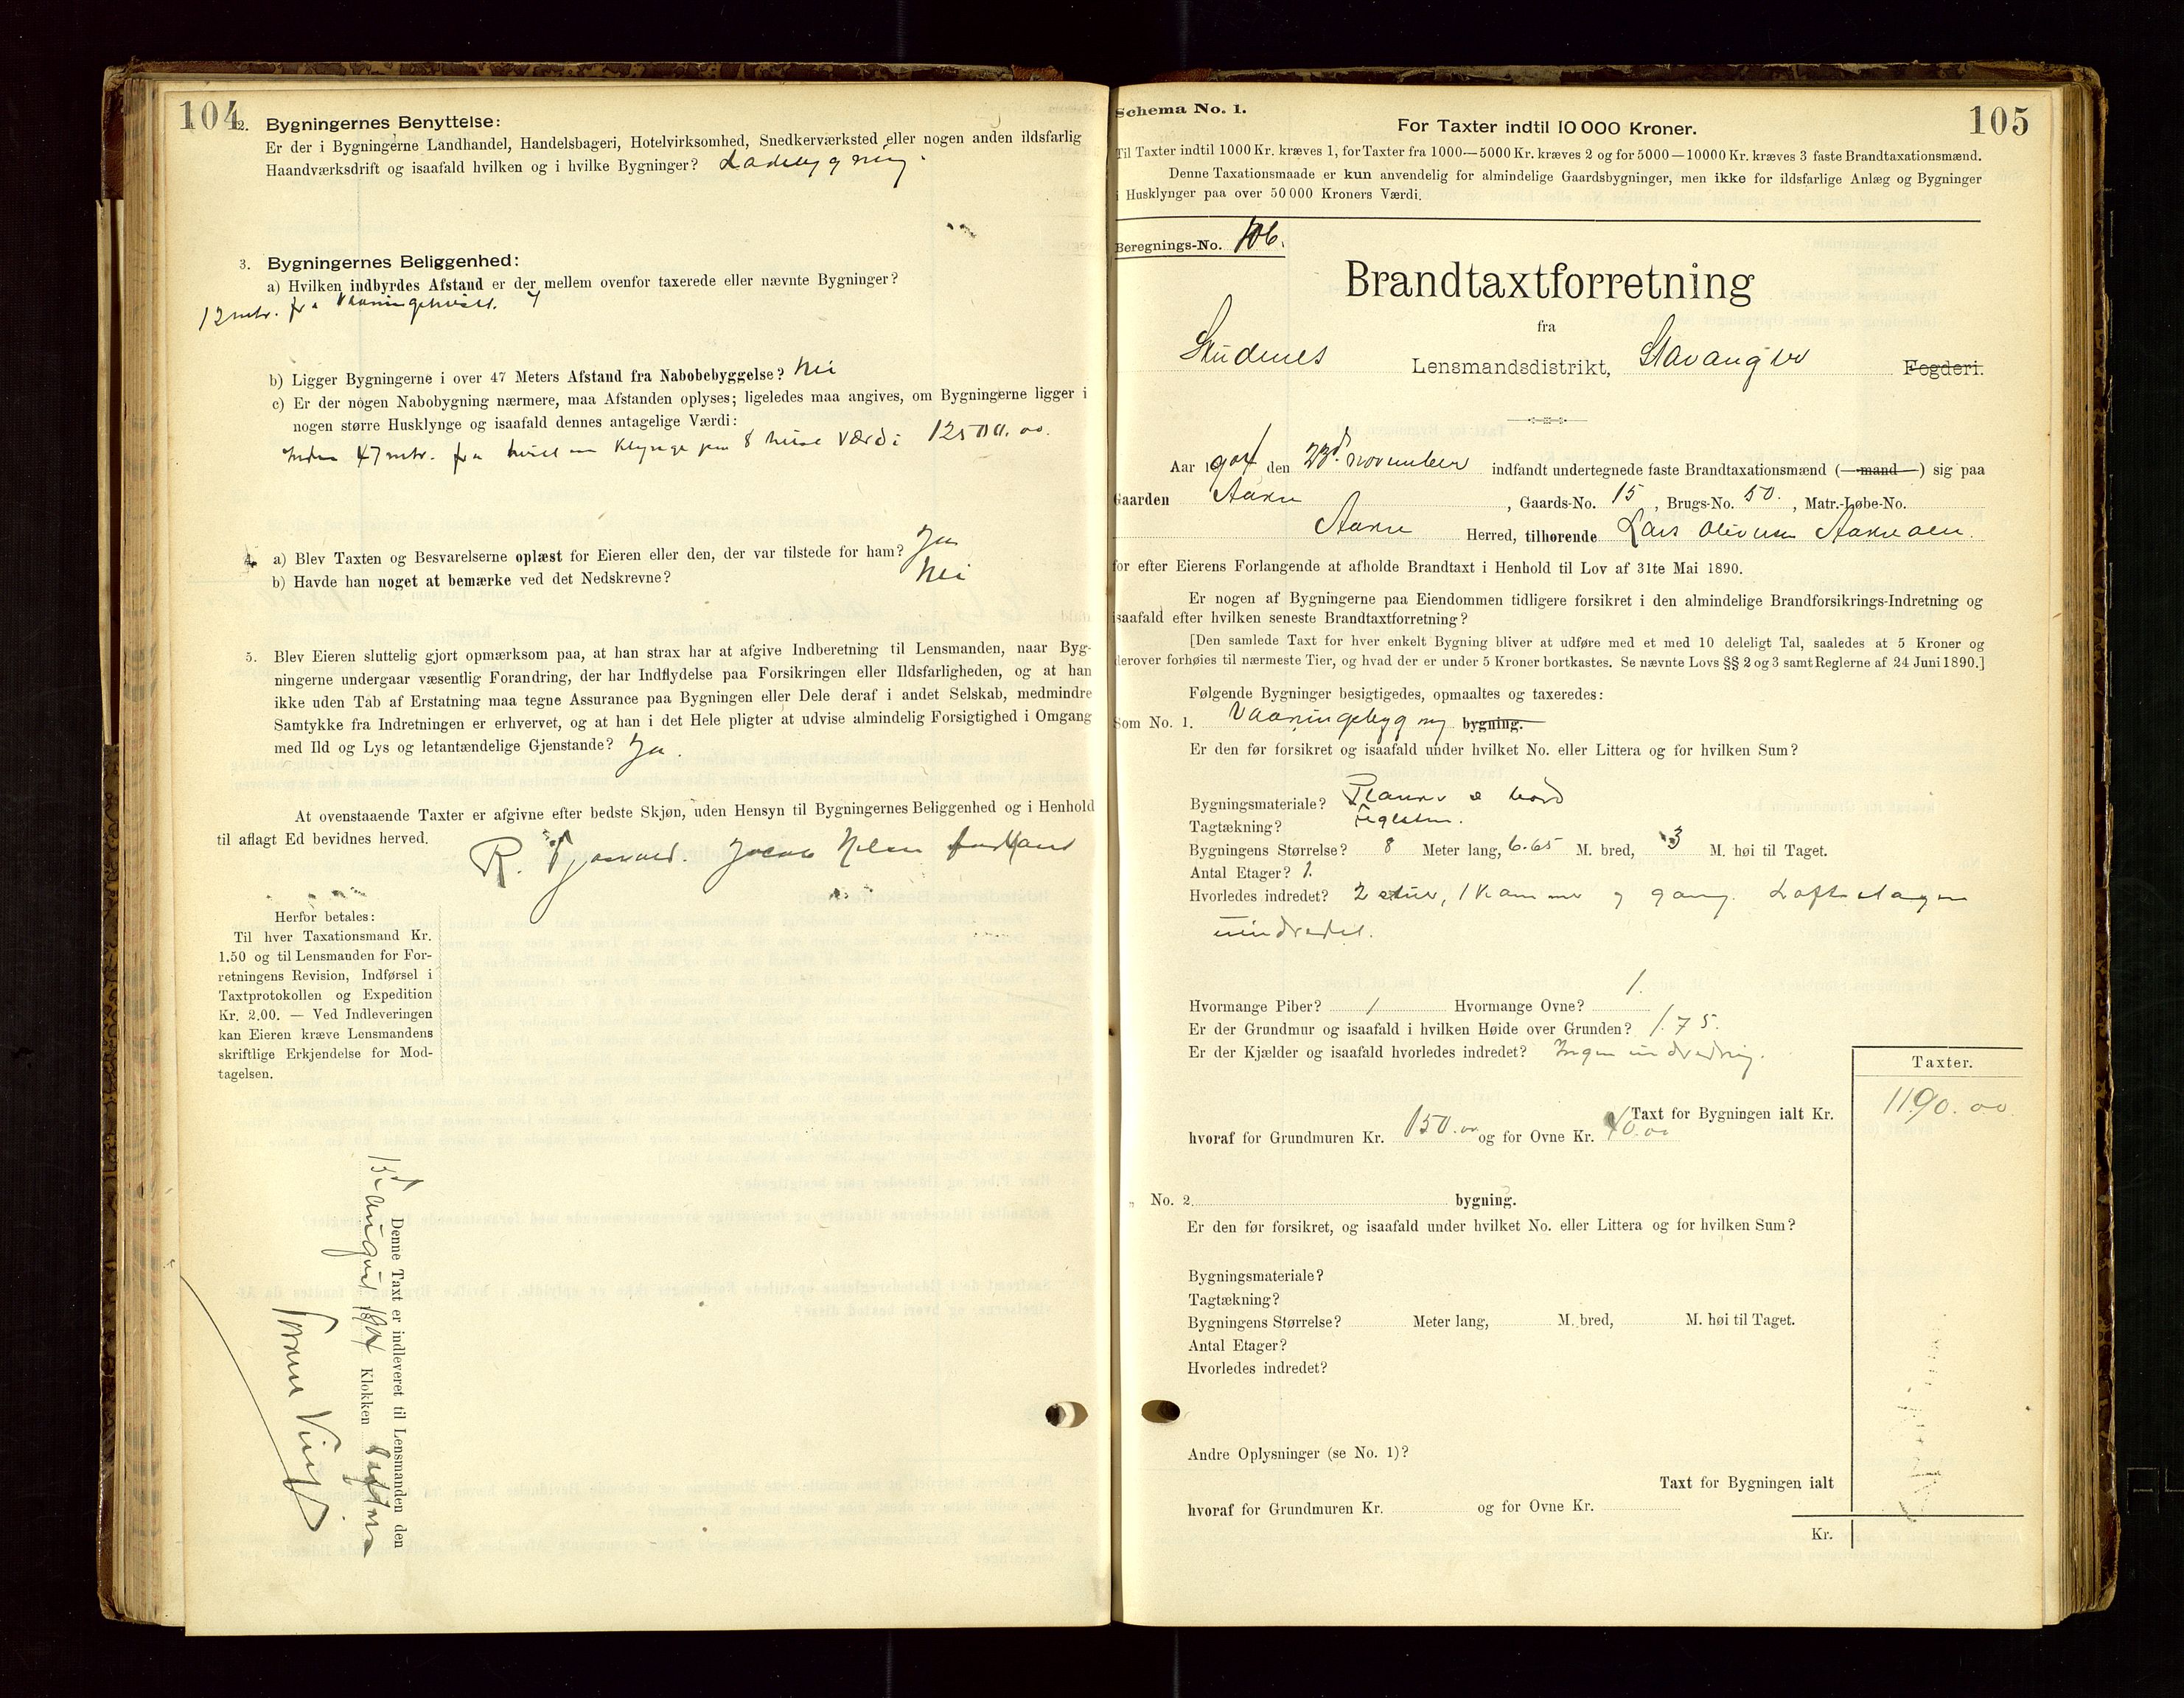 104
2. Bygningernes Benyttelse:
Er der i Bygningerne Landhandel, Handelsbageri, Hotelvirksomhed, Snedkerværksted eller nogen anden ildsfarlig
Haandværksdrift og isaafald hvilken og i hvilke Bygninger? Ladebygning.
3. Bygningernes Beliggenhed:
a) Hvilken indbyrdes Afstand er der mellem ovenfor taxerede eller nævnte Bygninger?
12 mtr. fra Vaaningshuset.
b) Ligger Bygningerne i over 47 Meters Afstand fra Nabobebyggelse? Nei
c) Er der nogen Nabobygning nærmere, maa Afstanden oplyses; ligeledes maa angives, om Bygningerne ligger i
nogen større Husklynge og isaafald dennes antagelige Værdi:
Inden 47 mtr. fra huset en Klynge paa 8 huse Værdi 12500.00.
4. a) Blev Taxten og Besvarelserne oplæst for Eieren eller den, der var tilstede for ham? Ja
b) Havde han noget at bemærke ved det Nedskrevne? Nei
5. Blev Eieren sluttelig gjort opmærksom paa, at han strax har at afgive Indberetning til Lensmanden, naar Byg-
ningerne undergaar væsentlig Forandring, der har Indflydelse paa Forsikringen eller Ildsfarligheden, og at han
ikke uden Tab af Erstatning maa tegne Assurance paa Bygningen eller Dele deraf i andet Selskab, medmindre
Samtykke fra Indretningen er erhvervet, og at han i det Hele pligter at udvise almindelig Forsigtighed i Omgang
med Ild og Lys og letantændelige Gjenstande? Ja.
At ovenstaaende Taxter er afgivne efter bedste Skjøn, uden Hensyn til Bygningernes Beliggenhed og i Henhold
til aflagt Ed bevidnes herved.
R. Jacob Nilsen
Herfor betales:
Til hver Taxationsmand Kr.
1.50 og til Lensmanden for For-
retningens Revision, Indførsel i
Taxtprotokollen og Expedition
Kr. 2.00. — Ved Indleveringen
kan Eieren kræve Lensmandens
skriftlige Erkjendelse for Mod-
tagelsen.
Denne Taxt er indleveret til Lensmanden den
13de August 1904 Klokken
105
Schema No. 1.
For Taxter indtil 10 000 Kroner.
Til Taxter indtil 1000 Kr. kræves 1, for Taxter fra 1000—5000 Kr. kræves 2 og for 5000—10000 Kr. kræves 3 faste Brandtaxationsmænd.
Denne Taxationsmaade er kun anvendelig for almindelige Gaardsbygninger, men ikke for ildsfarlige Anlæg og Bygninger
i Husklynger paa over 50 000 Kroners Værdi.
Beregnings-No. 106.
Brandtaxtforretning
fra
Skudenes Lensmandsdistrikt, Stavanger Fogderi.
Aar 1904 den 23d. november indfandt undertegnede faste Brandtaxationsmænd (—mand—) sig paa
Gaarden Aakre, Gaards-No. 15, Brugs-No. 50., Matr.-Løbe-No.
Aakre Herred, tilhørende Lars Olivusen Aakredalen.
for efter Eierens Forlangende at afholde Brandtaxt i Henhold til Lov af 31te Mai 1890.
Er nogen af Bygningerne paa Eiendommen tidligere forsikret i den almindelige Brandforsikrings-Indretning og
isaafald efter hvilken seneste Brandtaxtforretning?
[Den samlede Taxt for hver enkelt Bygning bliver at udføre med et med 10 deleligt Tal, saaledes at 5 Kroner og
derover forhøies til nærmeste Tier, og hvad der er under 5 Kroner bortkastes. Se nævnte Lovs §§ 2 og 3 samt Reglerne af 24 Juni 1890.]
Følgende Bygninger besigtigedes, opmaaltes og taxeredes:
Som No. 1. Vaaningsbygning bygning.
Er den før forsikret og isaafald under hvilket No. eller Littera og for hvilken Sum?
Bygningsmateriale? Planker & bord
Tagtækning? Teglsten.
Bygningens Størrelse? 8 Meter lang, 6.65 M. bred, 3 M. høi til Taget.
Antal Etager? 1.
Hvorledes indredet? 2 stuer, 1 Kammer og gang. Loftsetagen
uindredet.
Hvormange Piber? 1 Hvormange Ovne? 1.
Er der Grundmur og isaafald i hvilken Høide over Grunden? 1.75.
Er der Kjælder og isaafald hvorledes indredet? Ingen indredning.
Taxter.
Taxt for Bygningen ialt Kr. 1190.00
hvoraf for Grundmuren Kr. 150.00 og for Ovne Kr. 40.00
" No. 2. bygning.
Er den før forsikret, og isaafald under hvilket No. eller Littera og for hvilken Sum?
Bygningsmateriale?
Tagtækning?
Bygningens Størrelse? Meter lang, M. bred, M. høi til Taget.
Antal Etager?
Hvorledes indredet?
Andre Oplysninger (se No. 1)?
Taxt for Bygningen ialt
hvoraf for Grundmuren Kr. og for Ovne Kr.
Kr.